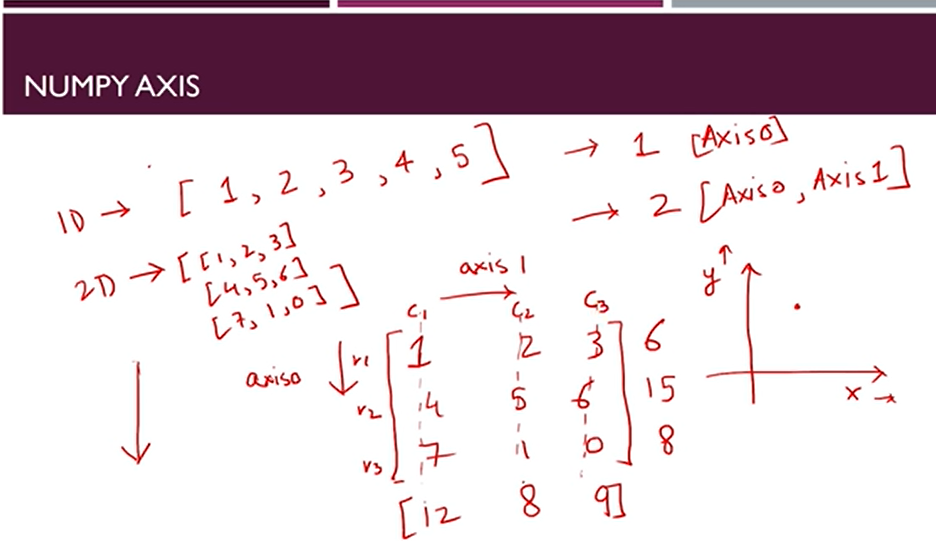 NUMPY AXIS
1D → [ 1, 2, 3, 4, 5 ] → 1 [Axis0]
→ 2 [Axis0, Axis1]
2D → [[1, 2, 3]
[4, 5, 6]
[7, 1, 0]]
axis 1 →
y ↑
C1 C2 C3
axis0 ↓ r1 [ 1 2 3 ] 6
r2 4 5 6 15
r3 7 1 0 8
x →
[12 8 9]